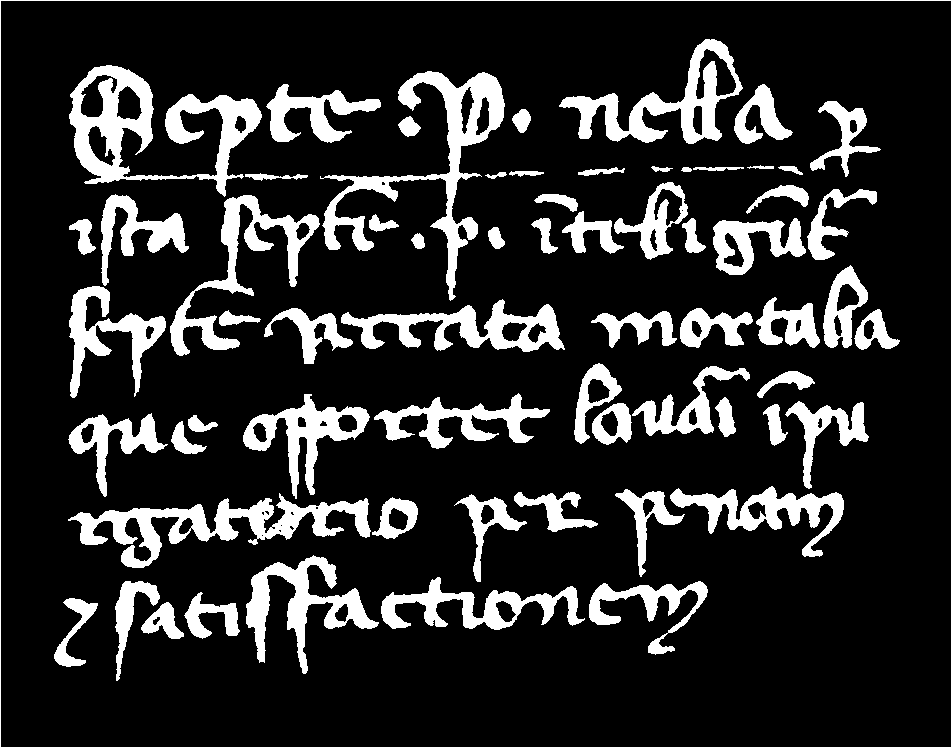 Septe .P. nella p̲
ista septē .p. ītelligūt̄
septē peccata mortalia
que opportet lauāi īpu
rgatorio per penam
⁊ satisfactionem